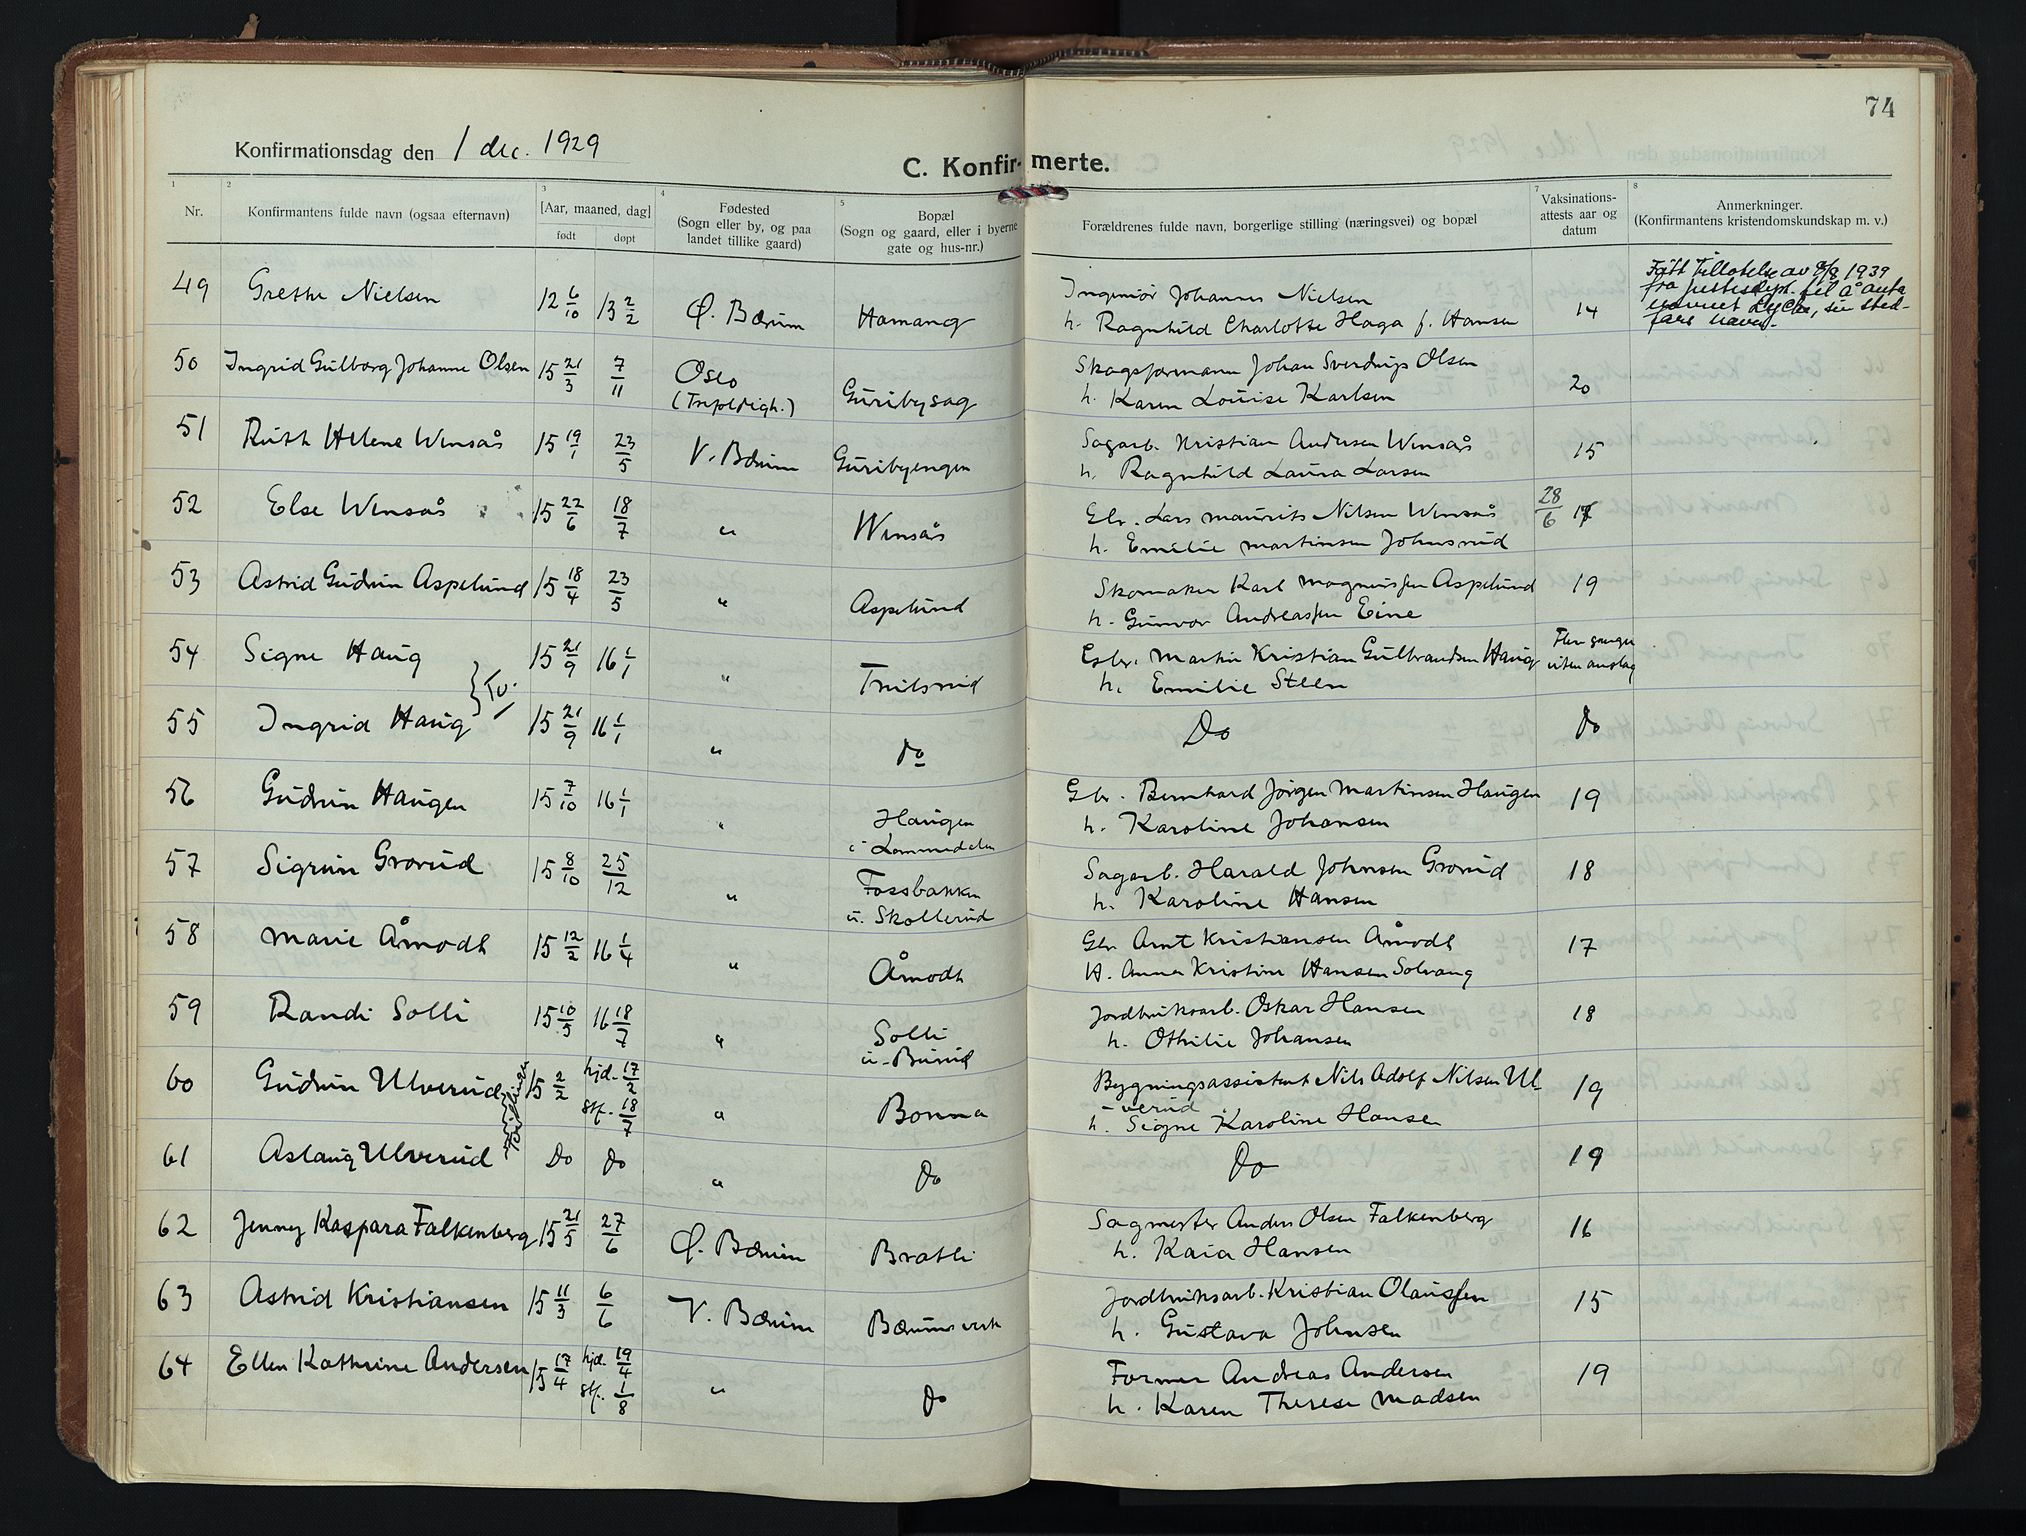 74
Konfirmationsdag den 1 dec. 1929
C. Konfir- merte.
1 2 3 4 5 7 8
Nr. Konfirmantens fulde navn (ogsaa efternavn) [Aar, maaned, dag] født døpt Fødested (Sogn eller by, og paa landet tillike gaard) Bopæl (Sogn og gaard, eller i byerne gate og hus-nr.) Forældrenes fulde navn, borgerlige stilling (næringsvei) og bopæl Vaksinations-attests aar og datum Anmerkninger. (Konfirmantens kristendomskundskap m. v.)
49 Grethe Nielsen 12 6/10 13 2/2 Ø. Bærum Hamang Ingeniør Johannes Nielsen 14 Fått tillatelse av 1939
fra justisdept. til å anta
navnet Lyche, sin sted-
fars navn.
h. Ragnhild Charlotte Haga f. Hansen
50 Ingrid Gulborg Johanne Olsen 15 21/3 7/11 Oslo (Trefoldigh.) Guribysag Skogsformann Johan Sverdrup Olsen 20
h. Karen Louise Karlsen
51 Ruth Helene Wensås 15 19/1 23/5 V. Bærum Guribyengen Sagarb. Kristian Andersen Wensås 15
h. Ragnhild Laura Larsen
52 Else Wensås 15 22/6 18/7 " Wensås Gbr. Lars Maurits Nilsen Wensås 28/6
h. Emilie Martinsen Johnsrud
53 Astrid Gudrun Aspelund 15 18/4 23/5 " Aspelund Skomaker Karl Magnussen Aspelund 19
h. Gunvor Andreassen Eine
54 Signe Haug } Tv. 15 21/9 16 1/1 " Trulsrud Gbr. Martin Kristian Gulbrandsen Haug Flere ganger
uten anslag
h. Emilie Steen
55 Ingrid Haug 15 21/9 16 1/1 " do Do do
56 Gudrun Haugen 15 7/10 16 1/1 " Haugen i Lommedalen Gbr. Bernhard Jørgen Martinsen Haugen 19
h. Karoline Johansen
57 Sigrun Grorud 15 8/10 25/12 " Fossbakken u. Skollerud Sagarb. Harald Johnsen Grorud 18
h. Karoline Hansen
58 Marie Åmodt 15 12/2 16 1/4 " Åmodt Gbr. Arnt Kristiansen Åmodt 17
H. Anna Kristine Hansen Solvang
59 Randi Solli 15 10/5 16 18/7 " Solli u. Burud Jordbruksarb. Oskar Hansen 18
h. Othilie Johansen
60 Gudrun Ulverud 15 2/2 hjd. 17/2 stf. 18/7 " Bonna Bygningsassistent Nils Adolf Nilsen Ul-
verud 19
h. Signe Karoline Hansen
61 Aslaug Ulverud Do do " do do 19
62 Jenny Kaspara Falkenberg 15 21/5 27/6 Ø. Bærum Bratli Sagmester Anders Olsen Falkenberg 16
h. Kaia Hansen
63 Astrid Kristiansen 15 11/3 6/6 V. Bærum Bærums verk Jordbruksarb. Kristian Olaussen 15
h. Gustava Johnsen
64 Ellen Kathrine Andersen 15 17/4 hjd. 19/4 stf. 1/8 " do Former Andreas Andersen 19
h. Karen Therese Madsen